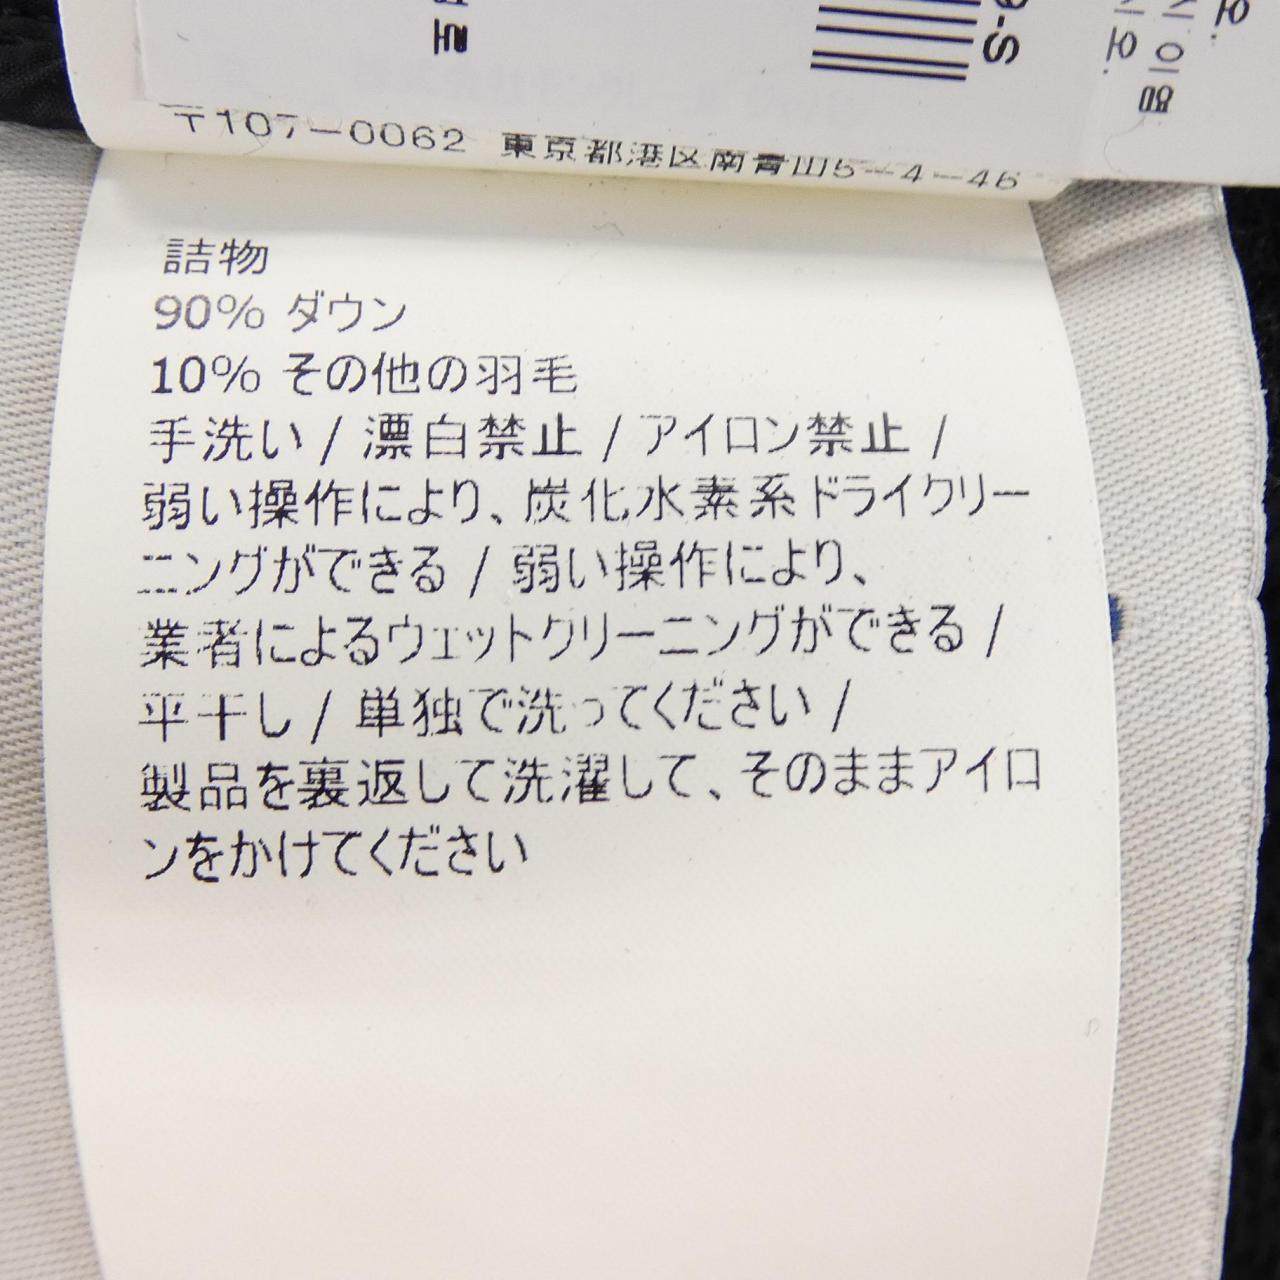 9-S
〒107-0062 東京都港区南青山5-4-46
詰物
90% ダウン
10% その他の羽毛
手洗い / 漂白禁止 / アイロン禁止 /
弱い操作により、炭化水素系ドライクリー
ニングができる / 弱い操作により、
業者によるウェットクリーニングができる /
平干し / 単独で洗ってください /
製品を裏返して洗濯して、そのままアイロ
ンをかけてください